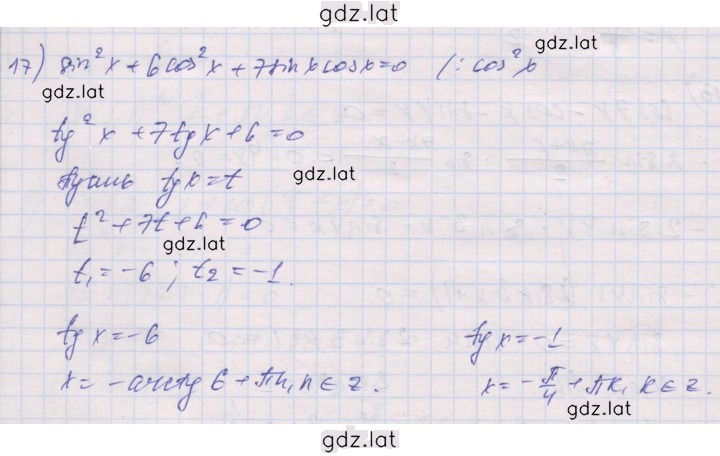 gdz.lat
17) sin²x + 6cos²x + 7sinxcosx = 0 /: cos²x
gdz.lat
gdz.lat
tg²x + 7tgx + 6 = 0
Пусть tgx = t
gdz.lat
t² + 7t + 6 = 0
gdz.lat
t₁ = -6 ; t₂ = -1.
tgx = -6
tgx = -1
x = -arctg 6 + πn, n ∈ z.
x = -π/4 + πk, k ∈ z.
gdz.lat
gdz.lat